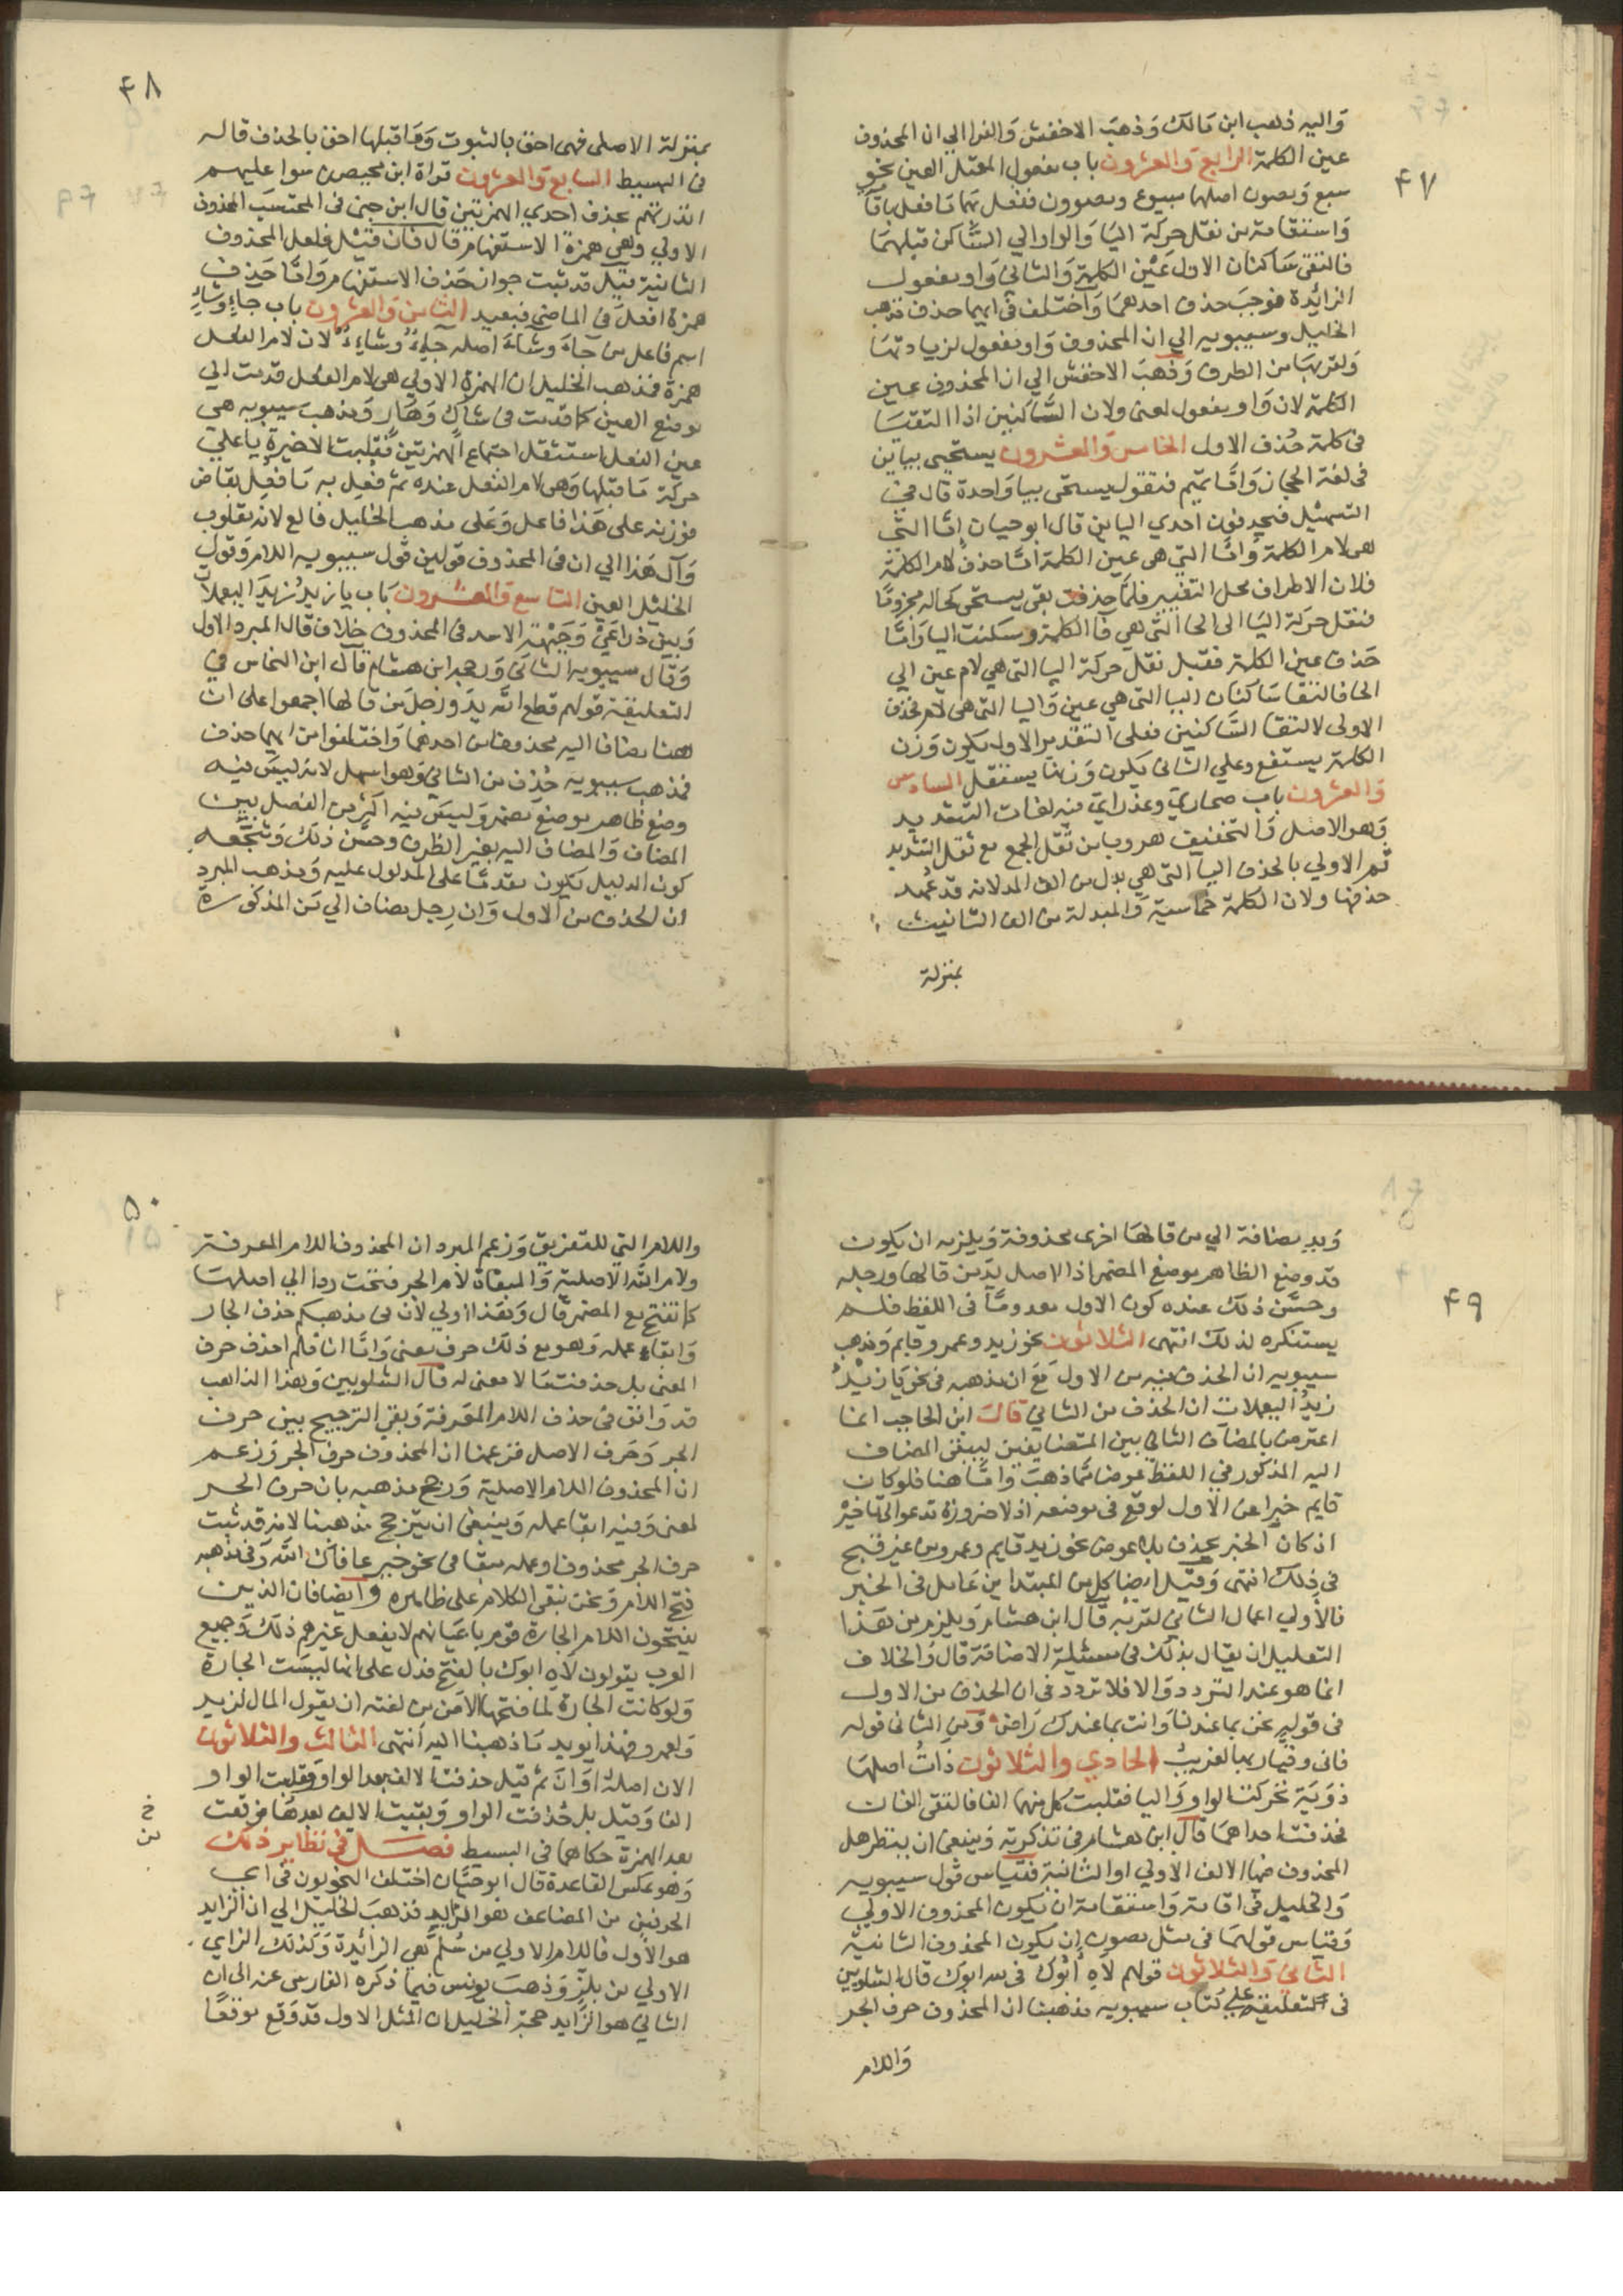 ٤٧
واليه ذهب ابن مالك وذهب الاخفش والفرا الي ان المحذوف
عين الكلمة الرابع والعشرون باب مفعول المعتل العين نحو
مبيع ومصون اصلهما مبيوع ومصوون ففعل بهما ما فعل باقامة
واستقامة من نقل حركة اليا والواو الي الساكن قبلهما
فالتقى ساكنان الاول عين الكلمة والثاني واو مفعول
الزائدة فوجب حذف احدهما واختلف في ايهما حذف فذهب
الخليل وسيبويه الي ان المحذوف واو مفعول لزيادتها
ولقربها من الطرف وذهب الاخفش الي ان المحذوف عين
الكلمة لان واو مفعول لمعنى ولان الساكنين اذا التقتا
في كلمة حذف الاول الخامس والعشرون يستحيي بيائين
في لغة الحجاز واما تميم فتقول يستحى بيا واحدة قال في
التسهيل فيحذفون احدي اليائين قال ابو حيان اما التى
هى لام الكلمة واما التى هى عين الكلمة اما حذف لام الكلمة
فلان الاطراف محل التغيير فلما حذفت بقى يستحى كحاله مجزوما
فنقل حركة اليا الى الحا التى هي فا الكلمة وسكنت اليا واما
حذف عين الكلمة فقبل نقل حركة اليا التى هي لام عين الي
الحا فالتقا ساكنان اليا التى هي عين واليا التى هى لام فحذف
الاولى لالتقا الساكنين فعلى التقدير الاول يكون وزن
الكلمة يستفع وعلي الثاني يكون وزنها يستفل السادس
والعشرون باب صحاري وعذراي فيه لغات التشديد
وهو الاصل والتخفيف هروبا من ثقل الجمع مع ثقل التشديد
ثم الاولي بالحذف اليا التى هي بدل من الف المد لانه قد عهد
حذفها ولان الكلمة خماسية والمبدلة من الف التانيث
بمنزلة
٤٨
بمنزلة الاصلى فهى احق بالثبوت وما قبلها احق بالحذف قاله
في البسيط السابع والعشرون قراة ابن محيصن سوا عليهم
انذرتهم بحذف احدي الهمزتين قال ابن جنى في المحتسب المحذوف
الاولي وهي همزة الاستفهام قال فان قيل فلعل المحذوف
الثانية قيل قد ثبت جواز حذف الاستفهام واما حذف
همزة افعل في الماضي فبعيد الثامن والعشرون باب جاءٍ وشاءٍ
اسم فاعل من جاء وشاء اصله جايءٌ وشايءٌ لان لام الفعل
همزة فذهب الخليل ان الهمزة الاولي هى لام الفعل قدمت الي
موضع العين كما قدمت في شاكٍ وهارٍ ومذهب سيبويه هي
عين الفعل استثقل اجتماع الهمزتين فقلبت الاخيرة يا علي
حركة ما قبلها وهى لام الفعل عنده ثم فُعِل به ما فُعِل بقاض
فوزنه على هذا فاعل وعلى مذهب الخليل فالع لانه مقلوب
وآل هذا الي ان في المحذوف قولين قول سيبويه اللام وقول
الخليل العين التاسع والعشرون باب يا زيدُ زيدَ اليعملات
وبين ذراعَيْ وجبهة الاسد في المحذوف خلاف قال المبرد الاول
وقال سيبويه الثاني ورجحه ابن هشام قال ابن النحاس في
التعليقة قولهم قطع الله يدَ ورِجلَ من قالها اجمعوا على ان
هنا مضافا اليه محذوفا من احدهما واختلفوا من ايهما حذف
فمذهب سيبويه حذف من الثاني وهو اسهل لانه ليس فيه
وضع ظاهر موضع مضمر وليس فيه اكثر من الفصل بين
المضاف والمضاف اليه بغير الظرف وحسَّن ذلك وشجعه
كون الدليل يكون مقدما على المدلول عليه ومذهب المبرد
ان الحذف من الاول وان رِجل مضاف الي مَن المذكورة
٤٩
ويد مضافة الي من قالها اخرى محذوفة ويلزمه ان يكون
قد وضع الظاهر موضع المضمر اذ الاصل يد من قالها ورجله
وحسَّن ذلك عنده كون الاول معدوما في اللفظ فلم
يستنكره لذلك انتهى الثلاثون نحو زيد وعمرو قايم ومذهب
سيبويه ان الحذف فيه من الاول مع ان مذهبه في نحو يا زيدُ
زيدَ اليعملات ان الحذف من الثاني قال ابن الحاجب انما
اعترض بالمضاف الثاني بين المتضايفين ليبقى المضاف
اليه المذكور في اللفظ عوضا مما ذهب واما هنا فلو كان
قايم خبرا عن الاول لوقع في موضعه اذ لا ضرورة تدعو الى تاخيره
اذ كان الخبر يحذف بلا عوض نحو زيد قايم وعمرو من غير قبح
في ذلك انتهى وقيل ايضا كل من المبتداين عامل في الخبر
فالاولي اعمال الثاني لقربه قال ابن هشام ويلزم من هذا
التعليل ان يقال بذلك في مسئلة الاضافة قال والخلاف
انما هو عند التردد والا فلا تردد في ان الحذف من الاول
في قوله نحن بما عندنا وانت بما عندك راض ومن الثاني قوله
فاني وقيار بها لغريبُ الحادي والثلاثون ذات اصلها
ذوية تحركت الواو واليا فقلبت كل منهما الفا فالتقى الفان
فحذفت احداهما قال ابن هشام في تذكرته وينبغي ان ينظر هل
المحذوف منهما الالف الاولي او الثانية فقياس قول سيبويه
والخليل في اقامة واستقامة ان يكون المحذوف الاولي
وقياس قولهما في مثل مصون ان يكون المحذوف الثانية
الثاني والثلاثون قولهم لاهِ ابُوك في لله ابوك قال الشلوبين
في التعليقة على كتاب سيبويه مذهبنا ان المحذوف حرف الجر
واللام
٥٠
واللام التي للتعريف وزعم المبرد ان المحذوف اللام المعرفة
ولام الله الاصلية والمبقاة لام الجر فتحت ردا الي اصلها
كما تفتح مع المضمر قال وهذا اولي لان في مذهبكم حذف الجار
وابقاء عمله وهو مع ذلك حرف معنى واما انا فلم احذف حرف
المعنى بل حذفت ما لا معنى له قال الشلوبين وهذا الذاهب
قد وافق في حذف اللام المعرفة وبقى الترجيح بين حرف
الجر وحرف الاصل فزعمنا ان المحذوف حرف الجر وزعم
ان المحذوف اللام الاصلية ورجح مذهبه بان حرف الجر
لمعنى وفيه ابقا عمله وينبغي ان يترجح مذهبنا لانه قد ثبت
حرف الجر محذوفا وعمله مبقا في نحو خيرٍ عافاك الله وفي مذهبه
فتح اللام ونحن نبقى الكلام على ظاهره وايضا فان الذين
يفتحون اللام الجارة قوم باعيانهم لا يفعل غيرهم ذلك وجميع
العرب يقولون لاهِ ابوك بالفتح فدل على انها ليست الجارة
ولو كانت الجارة لما فتحها الا من من لغته ان يقول المال لزيد
ولعمرو فهذا يويد ما ذهبنا اليه انتهى الثالث والثلاثون
الان اصله اوَان ثم قيل حذفت الالف بعد الواو وقلبت الواو
الفا وقيل بل حذفت الواو وبقيت الالف بعدها فوقعت
بعد الهمزة حكاهما في البسيط فصل في نظاير ذلك
خ
ن
وهو عكس القاعدة قال ابو حيان اختلف النحويون في اي
الحرفين من المضاعف هو الزايد فذهب الخليل الي ان الزايد
هو الاول فاللام الاولي من سُلَّم هي الزائدة وكذلك الزاي
الاولي من بلِزّ وذهب يونس فيما ذكره الفارسى عنه الى ان
الثاني هو الزايد حجة الخليل ان المثل الاول قد وقع موقعًا